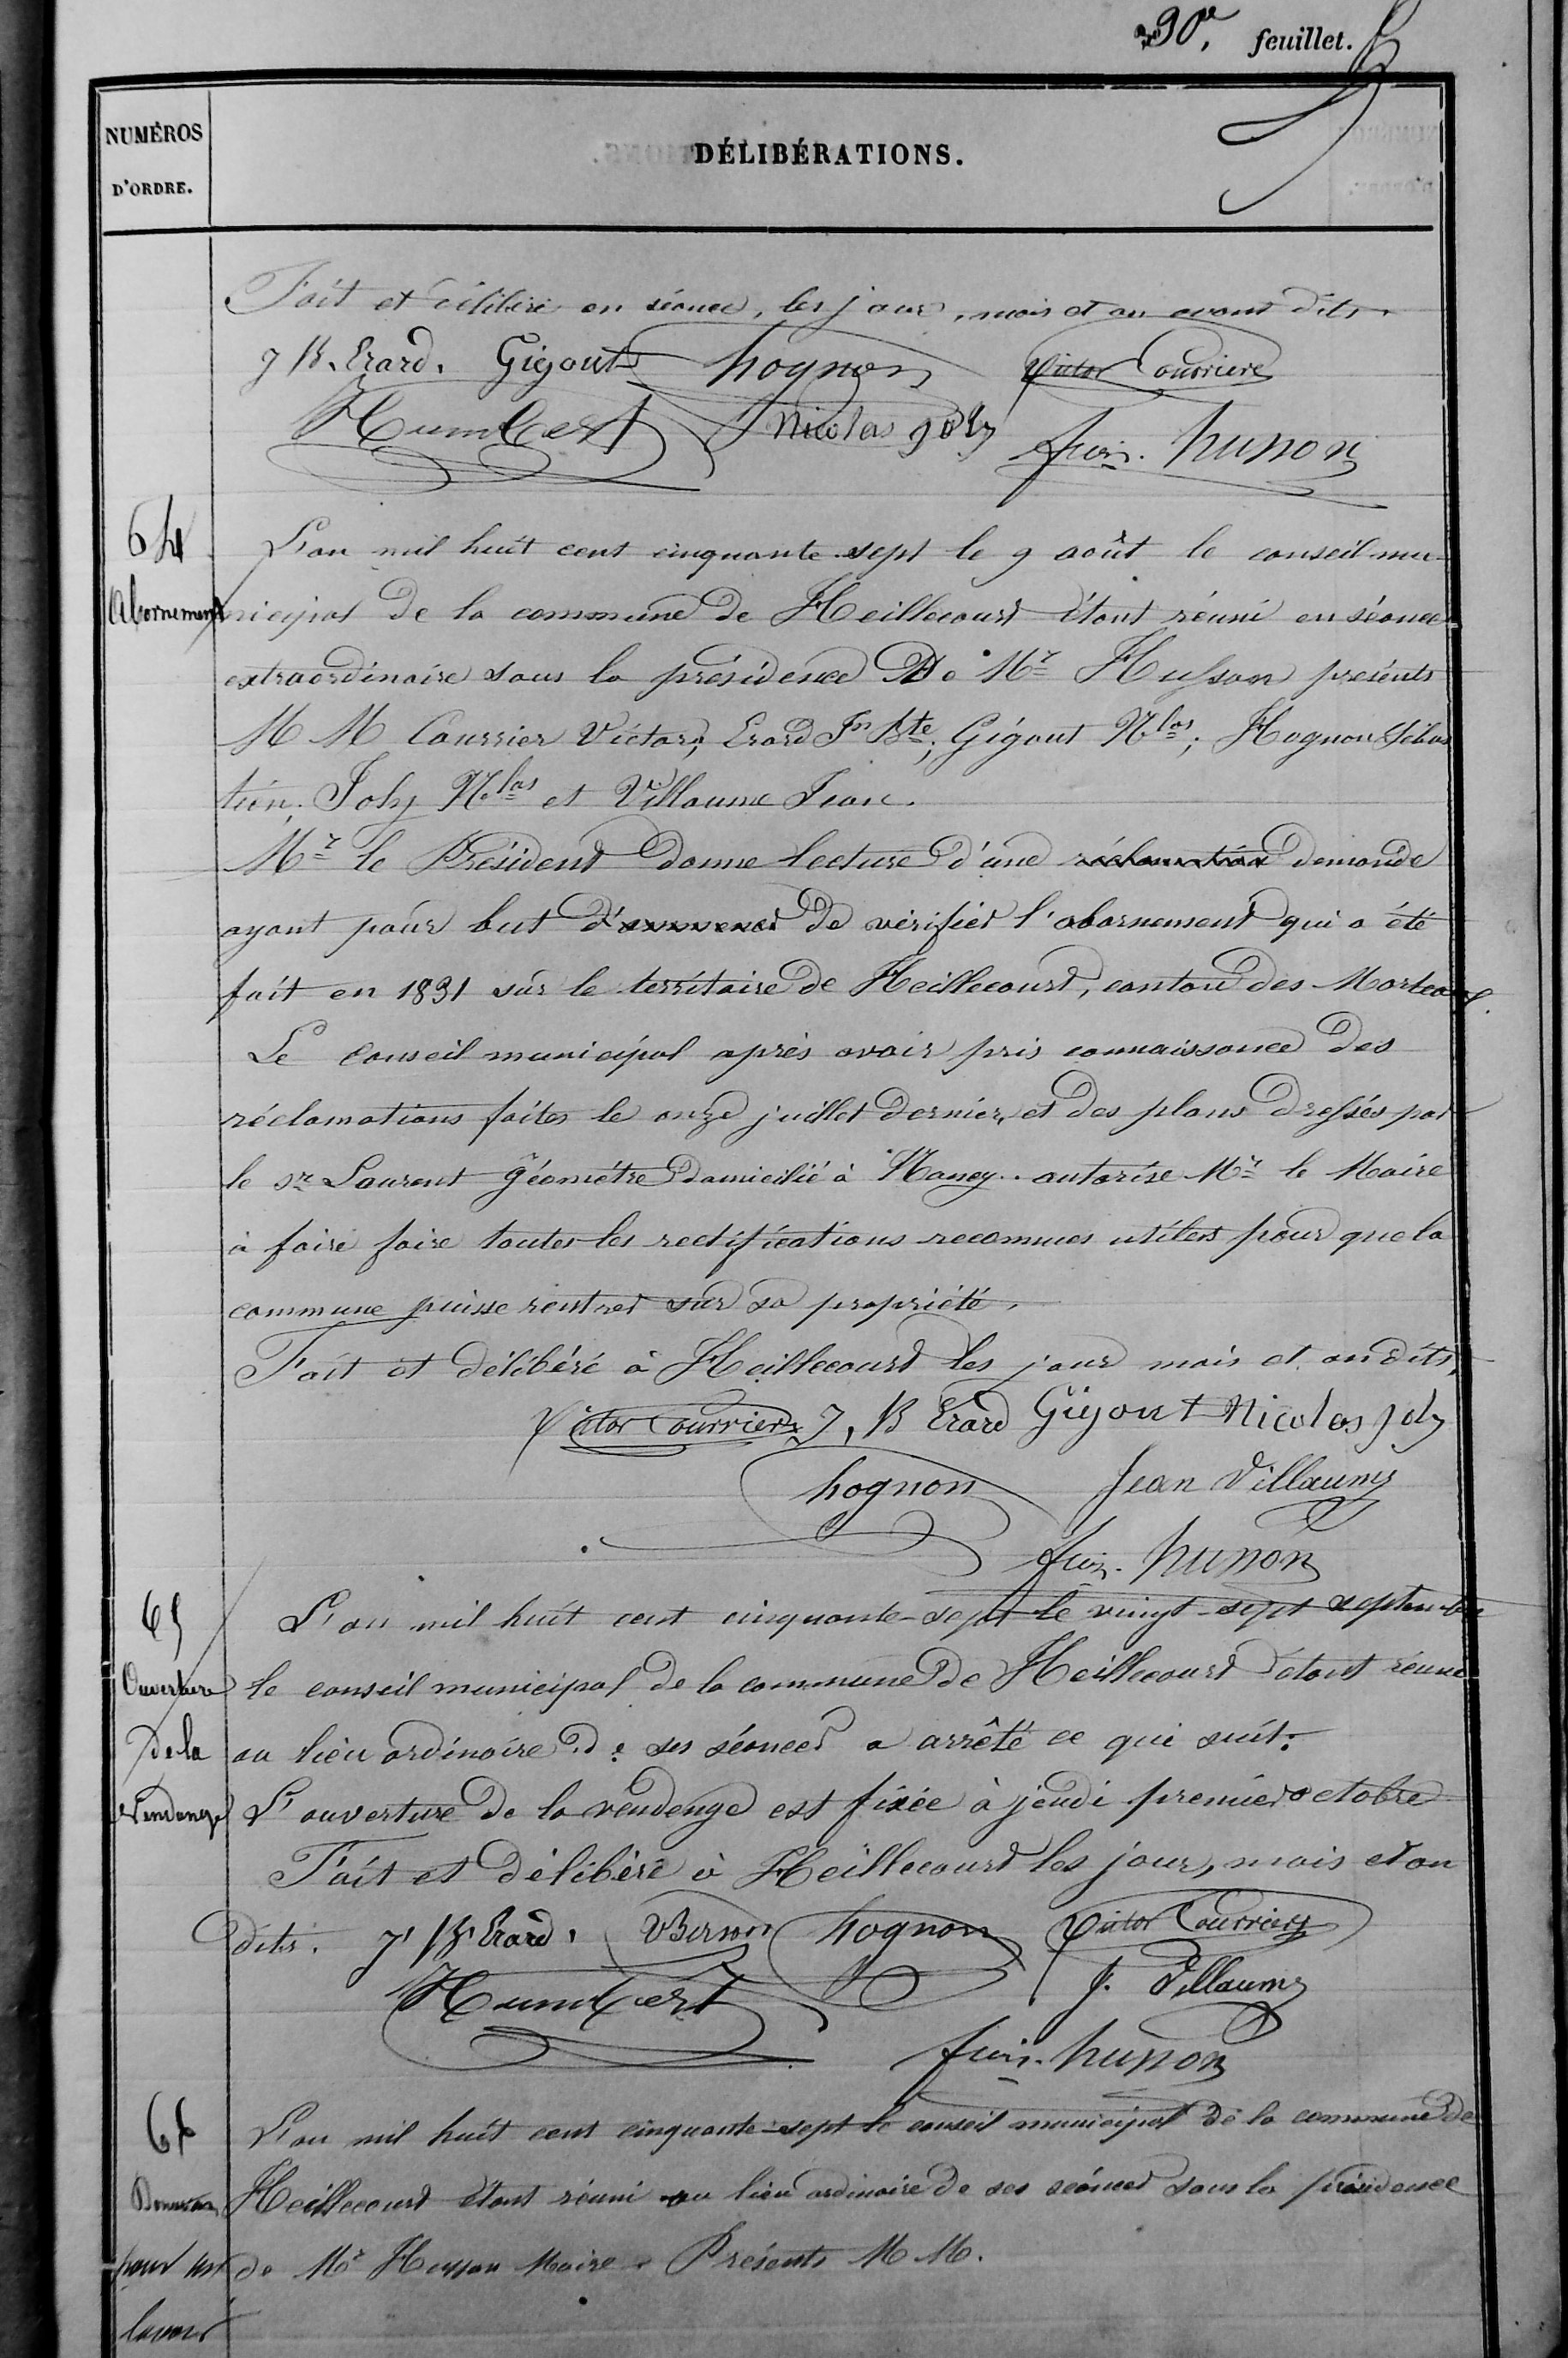 30e, feuillet.
NUMÉROS
D'ORDRE.
DÉLIBÉRATIONS.
Fait et délibéré en séance, les jour, mois et an avant dits.
J B. Erard. Gigout hognon Victor Courrier
Humbert Nicolas joly husson
64
Abornement
L'an mil huit cent cinquante-sept le 9 août le conseil mu-
nicipal de la commune de Heillecourt étant réuni en séance
extraordinaire sous la présidence De Mr Husson présents
M M Courrier Victor; Erard Jn Bte; Gigout N.las; Hognon Sébas
tien; Joly N.las et Villaume Jean.
Mr le Président donne lecture d'une réclamation demande
ayant pour but de vérifier l'abornement qui a été
fait en 1831 sur le territoire de Heillecourt, canton des
Le Conseil municipal après avoir pris connaissance des
réclamations faites le onze juillet dernier, et des plans dressés par
le sr Laurent géomètre domicilié à Nancy. autorise Mr le Maire
à faire faire toutes les rectifications reconnues utiles pour que la
commune puisse rentrer sur sa propriété.
Fait et délibéré à Heillecourt les jour mois et an dits,
Victor Courrier J, B Erard Gigout Nicolas joly
hognon Jean Villaume
husson
65
Ouverture
de la
Vendange
L'an mil huit cent cinquante-sept le vingt-sept septembre
le conseil municipal de la commune de Heillecourt étant réuni
au lieu ordinaire de ses séances a arrêté ce qui suit:
L'ouverture de la vendenge est fixée à jeudi premier octobre
Fait et délibéré à Heillecourt les jour, mois et an
dits. J B Erard. hognon Victor Courrier
Humbert J. Villaume
husson
66
pour un
lavoir
L'an mil huit cent cinquante-sept le conseil municipal de la commune de
Heillecourt étant réuni au lieu ordinaire de ses séances sous la présidence
de Mr Husson Maire. Présents M M.